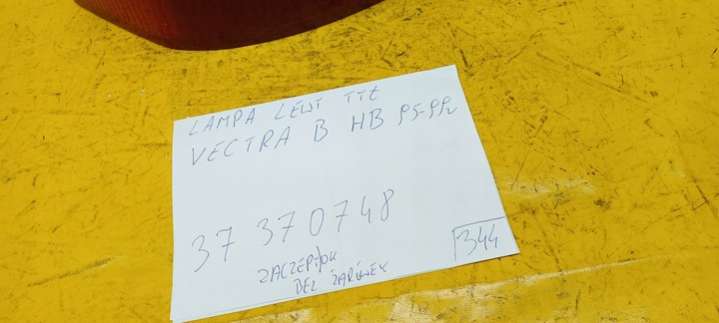 LAMPA LEWY TYŁ
VECTRA B HB 95-99r
37 370748
344
ZACZEP/OK
BEZ ŻARÓWEK